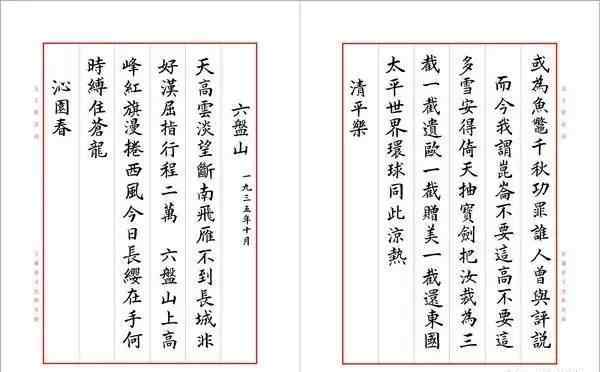 或為魚鼈千秋功罪誰人曾與評説
而今我謂崑崙不要這高不要這
多雪安得倚天抽寶劍把汝裁為三
截一截遺歐一截贈美一截還東國
太平世界環球同此涼熱
清平樂
六盤山 一九三五年十月
天高雲淡望斷南飛雁不到長城非
好漢屈指行程二萬 六盤山上高
峰紅旗漫捲西風今日長纓在手何
時縛住蒼龍
沁園春